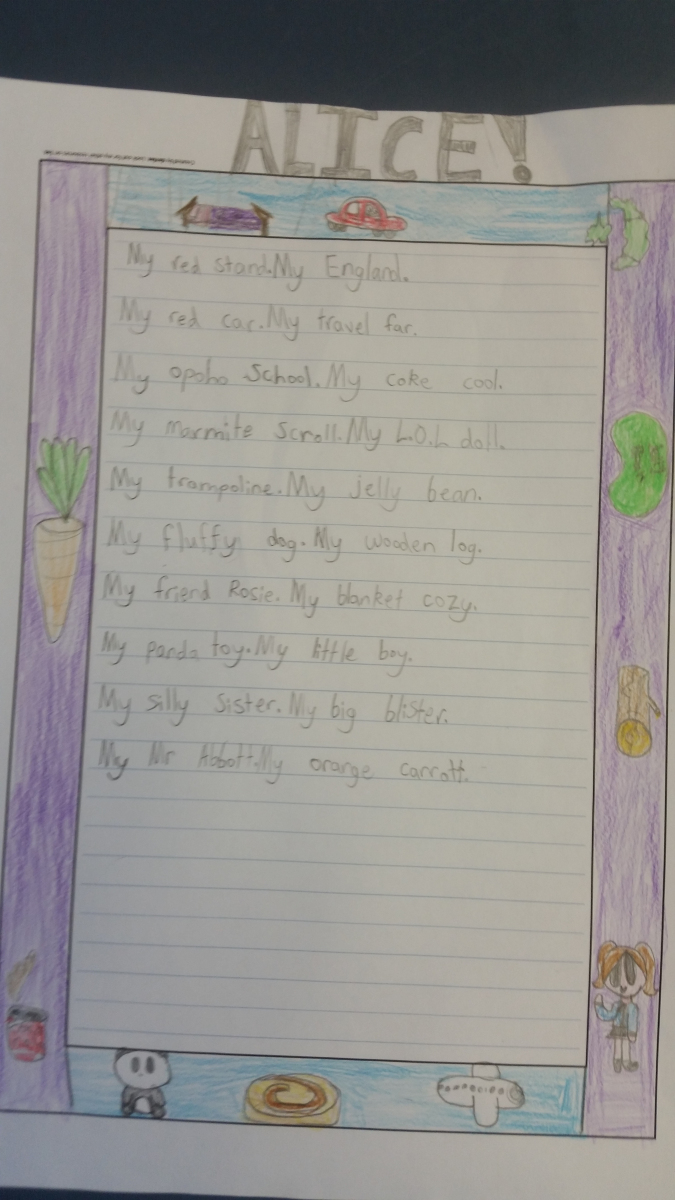 ALICE!
My red stand.My England.
My red car.My travel far.
My opoho School.My coke cool.
My marmite Scroll.My L.O.L doll.
My trampoline.My jelly bean.
My fluffy dog.My wooden log.
My friend Rosie.My blanket cozy.
My panda toy.My little boy.
My silly Sister.My big blister.
My Mr Abbott.My orange carrott.